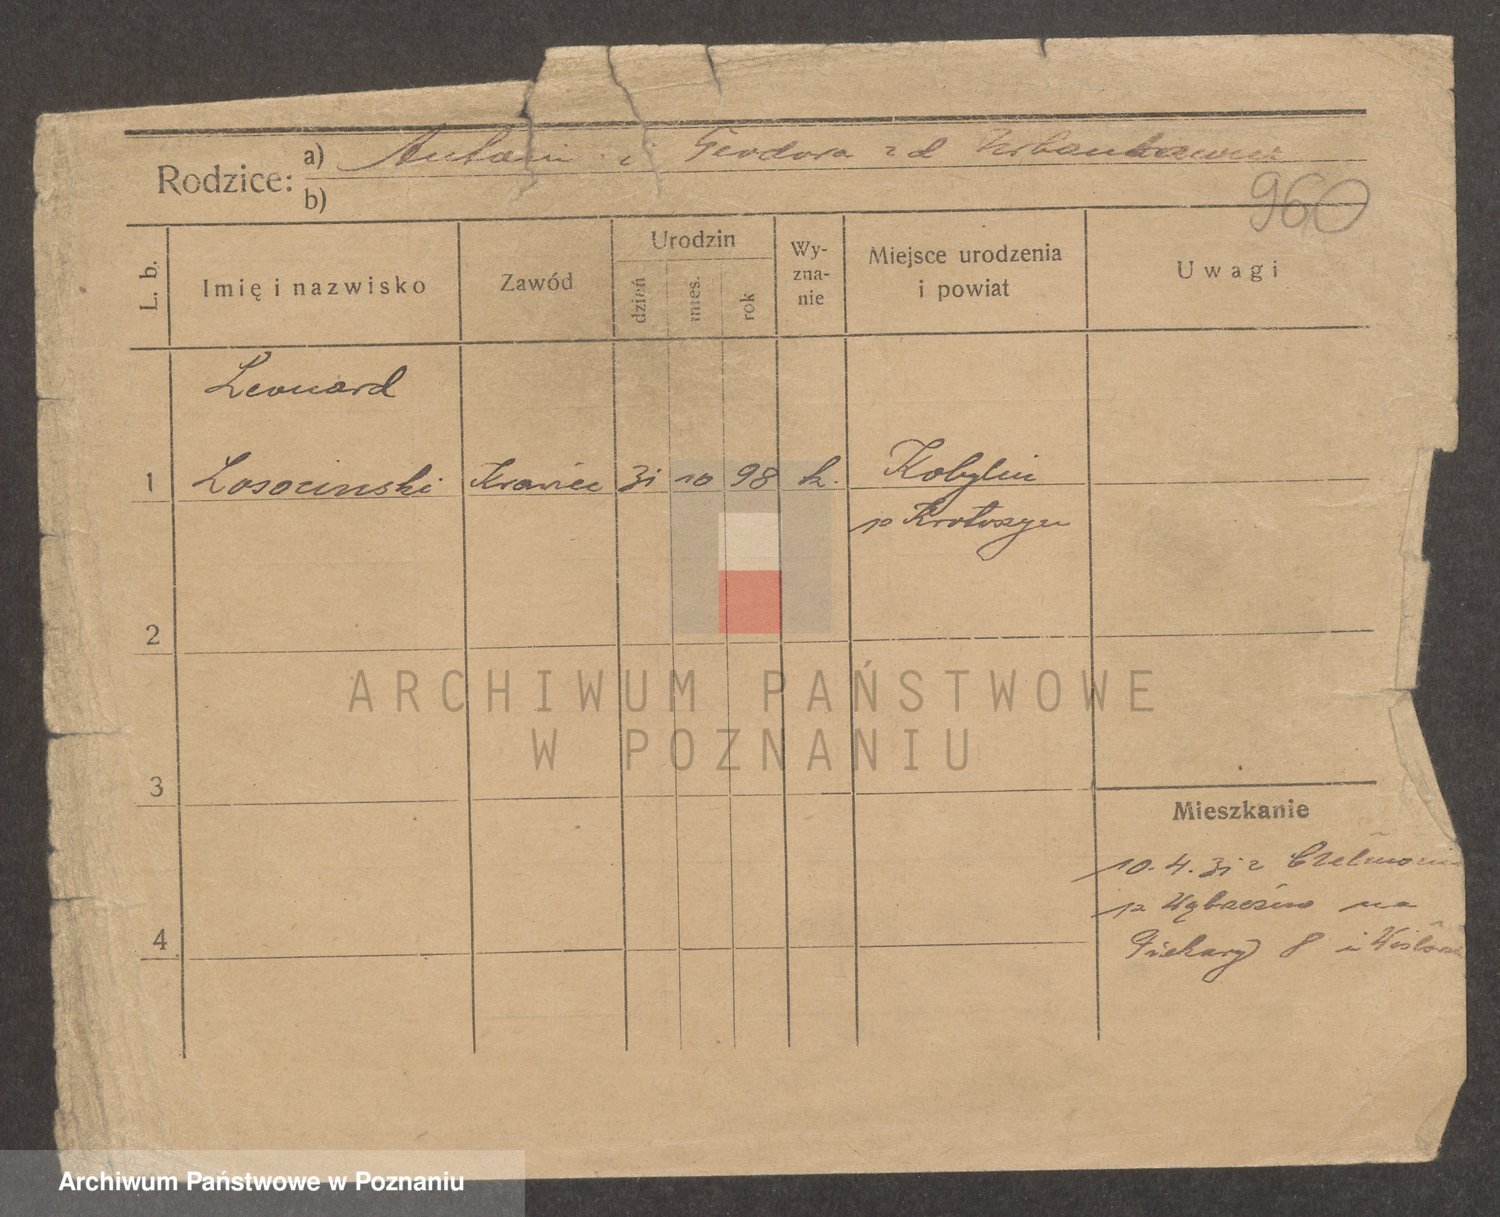 Rodzice:
a) Antoni i Teodora z d Urbankiewicz
b)
960
L. b.
Imię i nazwisko
Zawód
Urodzin
dzień
mies.
rok
Wy-
zna-
nie
Miejsce urodzenia
i powiat
Uwagi
Leonard
1 Lososinski Krawiec 31 10 98 k. Kobylin
p Krotoszyn
2
3
4
Mieszkanie
10. 4. 31 z
p Wąbrzeźno na
Piekary 8 u
ARCHIWUM PAŃSTWOWE
W POZNANIU
Archiwum Państwowe w Poznaniu